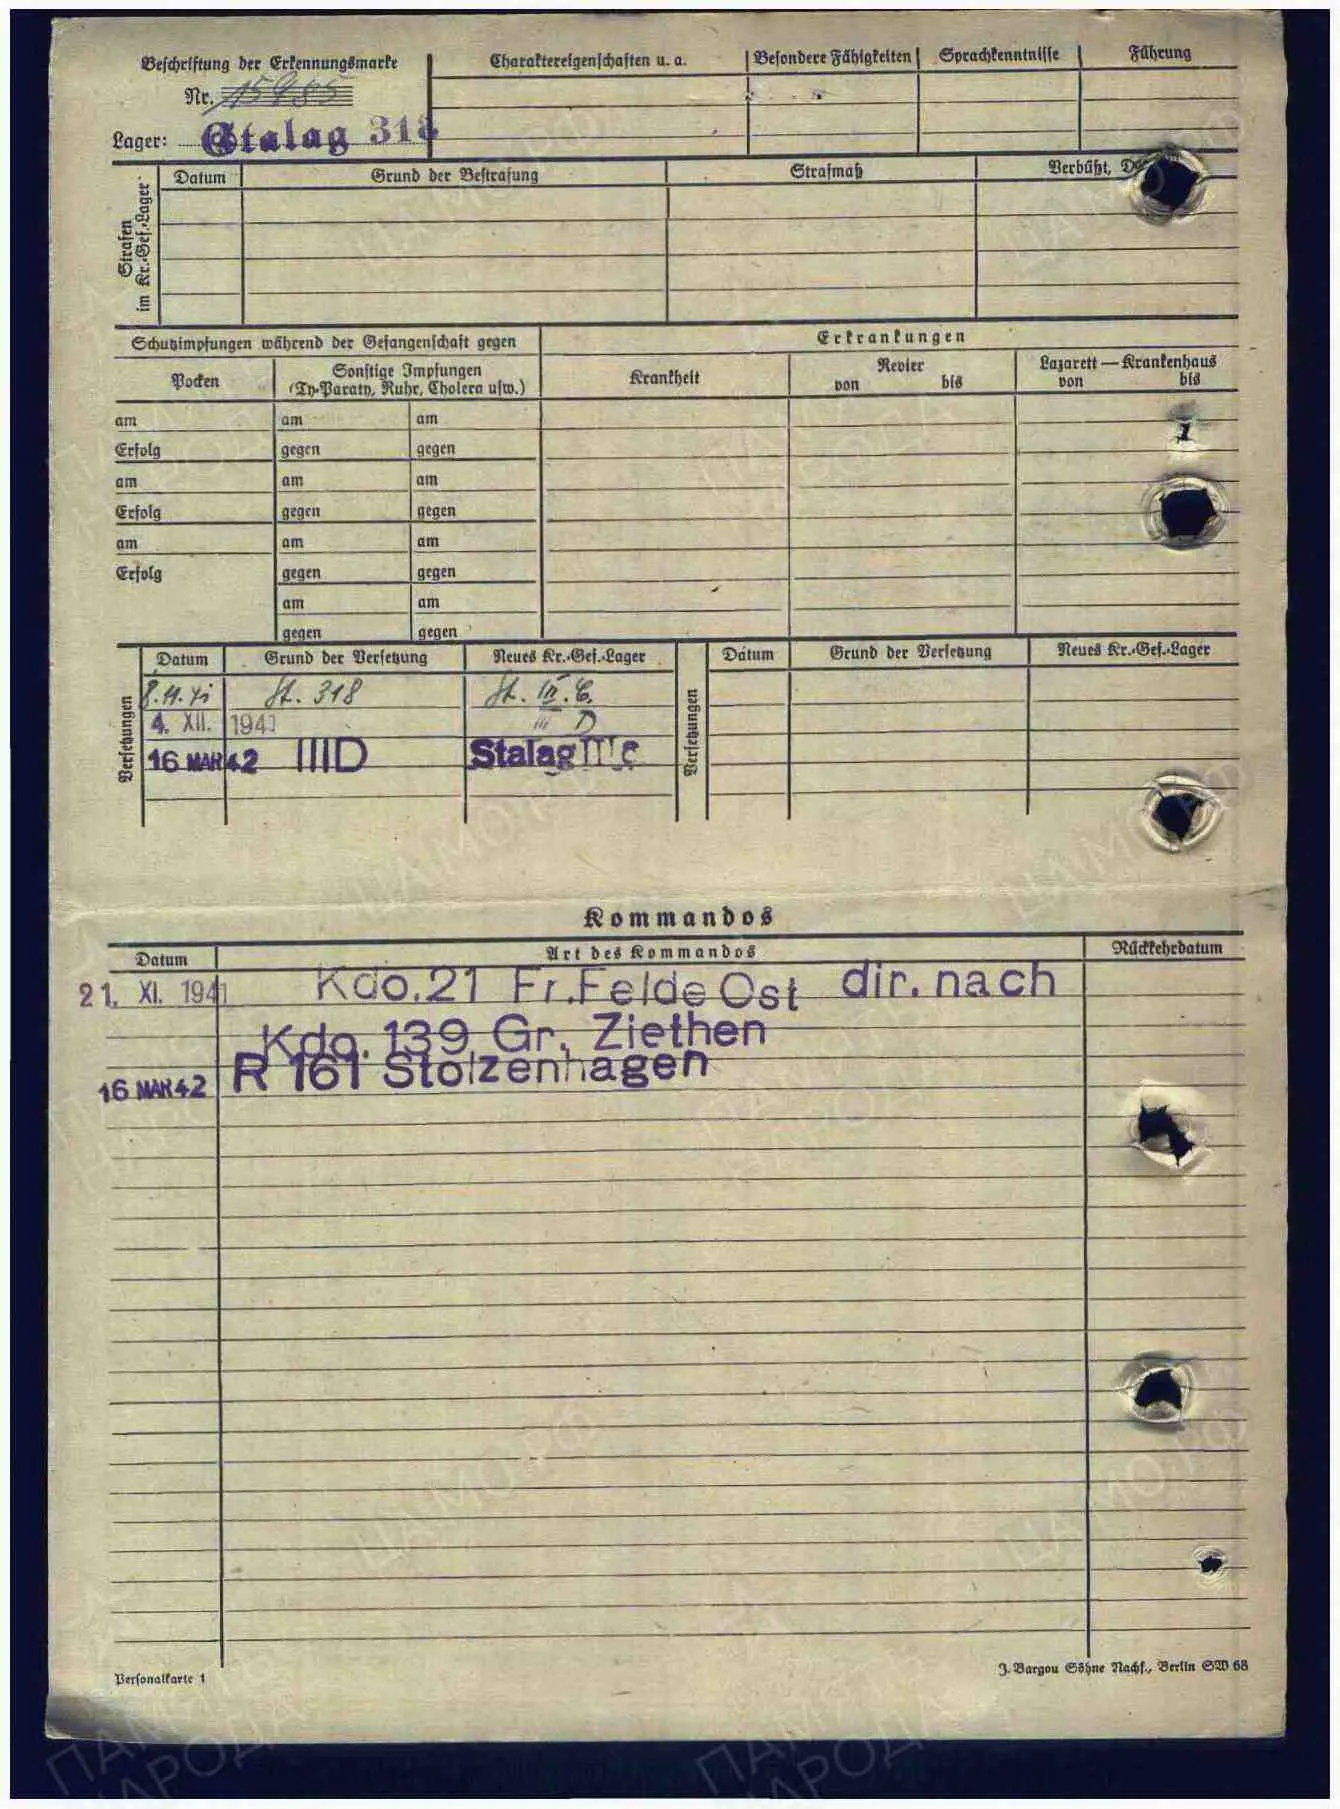 Beschriftung der Erkennungsmarke
Nr. 15985
Lager: Stalag 318
Charaktereigenschaften u. a.
Besondere Fähigkeiten
Sprachkenntnisse
Führung
Strafen
im Kr.-Gef.-Lager
Datum
Grund der Bestrafung
Strafmaß
Verbüßt,
Schutzimpfungen während der Gefangenschaft gegen
Erkrankungen
Pocken
Sonstige Impfungen
(Ty-Paraty, Ruhr, Cholera usw.)
Krankheit
Revier
von bis
Lazarett — Krankenhaus
von bis
am am am
1
Erfolg gegen gegen
am am am
Erfolg gegen gegen
am am am
Erfolg gegen gegen
am am
gegen gegen
Versetzungen
Datum Grund der Versetzung Neues Kr.-Gef.-Lager
8.11.41 St. 318 St. III. C.
4. XII. 1941 III D
16 MAR 42 IIID Stalag III C
Versetzungen
Datum Grund der Versetzung Neues Kr.-Gef.-Lager
Kommandos
Datum Art des Kommandos Rückkehrdatum
21. XI. 1941 Kdo.21 Fr.Felde Ost dir. nach
Kdo. 139 Gr. Ziethen
16 MAR 42 R 161 Stolzenhagen
Personalkarte 1
J. Bargou Söhne Nachf., Berlin SW 68
ПАМЯТЬ НАРОДА
ЦАМО.РФ